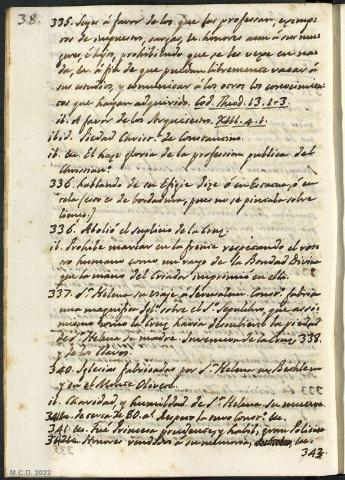 38.
335. Leyes à favor de los que las professan, exemp.
tos de impuestos, cargas, &c. honores aun à sus mu-
geres, è hijos, prohibiendo que se les vexe en na-
da, &c. à fin de que puedan libremente vacar à
sus estudios, y comunicar à los otros los conocimien-
tos que hayan adquirido. Cod. Theod. 13. 1-3.
ib. A favor de los Arquitectos. XIII. 4. 1.
ibid. Piedad Christ.ª de Constantino.
ib. &c. El haze gloria de la profession publica del
Christian.º
336. hablando de su Efigie dize ò en Estatua, ò en
tela (esto es de bordadura, pues no se pintaba sobre
lienzo.)
336. Abolió el suplicio de la Cruz,
ib. Prohibe marcar en la frente respetando el ros-
tro humano como un rayo de la Bondad Divina
que la mano del Criador imprimió en ella.
337. S.ta Helena su viage à Jerusalem. Const.º fabrica
una magnifica Igl.ª sobre el S.to Sepulcro, que assi-
mismo como la Cruz havia descubierto la piedad
de S.ta Helena su madre. Invencion de la Cruz 338.
y de los Clavos.
340. Iglesias fabricadas por S.ta Helena en Bethleem
y en el Monte Olivete.
ib. Charidad y humildad de S.ta Helena. Su muerte
341. de cerca de 80. a.s Respeto la tuvo Const.º &c.
341. &c. Fué Princesa prudente, y habil, gran Politica
342. Honores rendidos à su memoria, &c.
342.
M.C.D. 2022